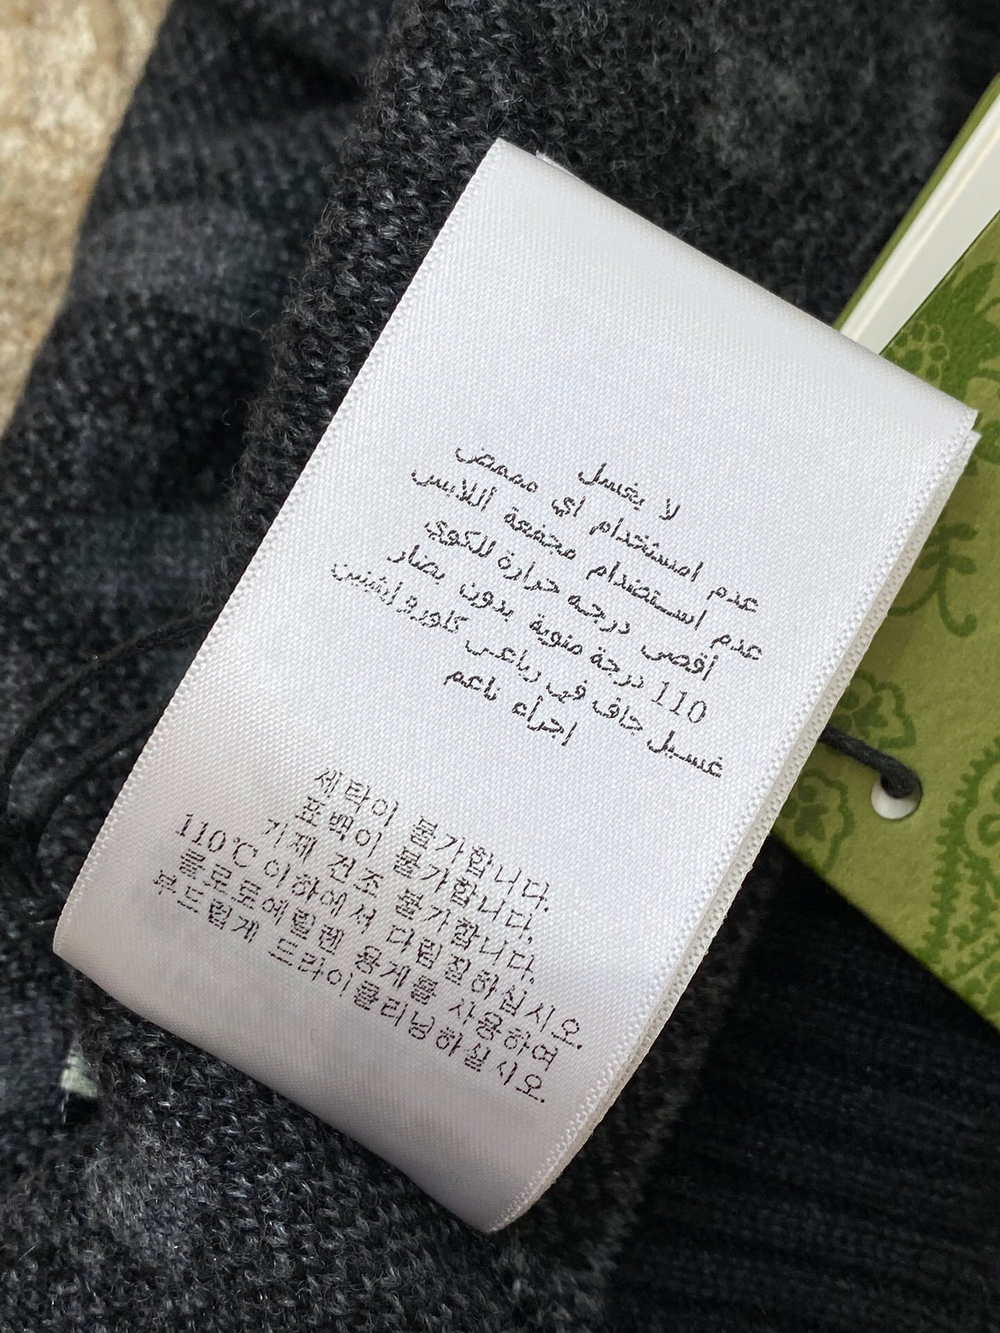 لا يغسل
عدم امستخدام اي مممض
عدم استضدام مجفعة اللابس
أقصى درجه حرارة للكوي
110 درجة منوية بدون بضار
غسيل جاف في رباعي كلورو إيثنين
اجرأء ناعم
세탁이 불가합니다.
표백이 불가합니다.
기제 건조 불가합니다.
110℃ 이하에서 다림질하십시오.
클로로에틸렌 용게를 사용하여
부드럽게 드라이클리닝하십시오.
天